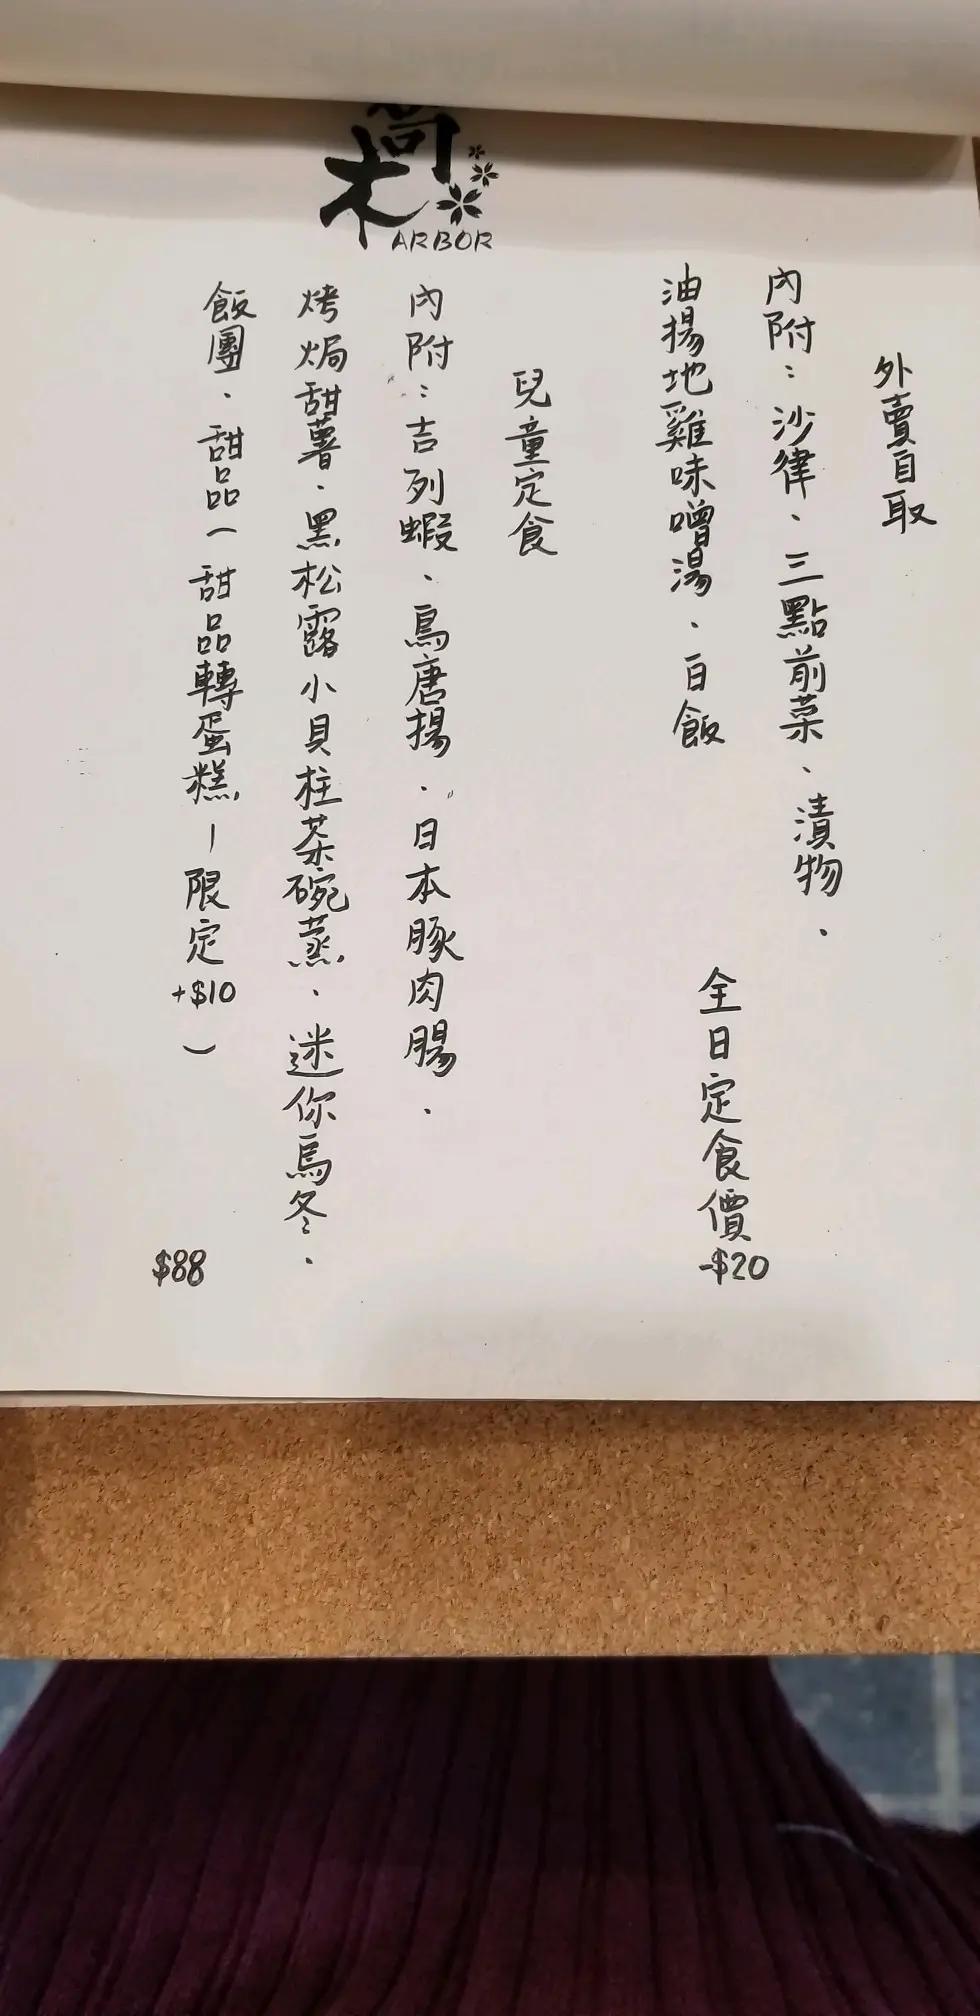 木
ARBOR
外賣自取
內附：沙律、三點前菜、漬物、
油揚地雞味噌湯、白飯
全日定食價
-$20
兒童定食
內附：吉列蝦、鳥唐揚、日本豚肉腸、
烤焗甜薯、黑松露小貝柱茶碗蒸、迷你烏冬、
飯團、甜品（甜品轉蛋糕－限定
+$10）
$88